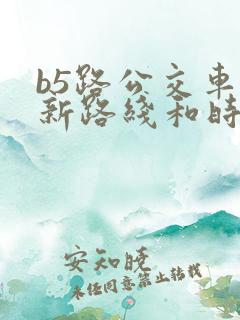 b5路公交车
新路线和时
安知晓
未经同意禁止转载